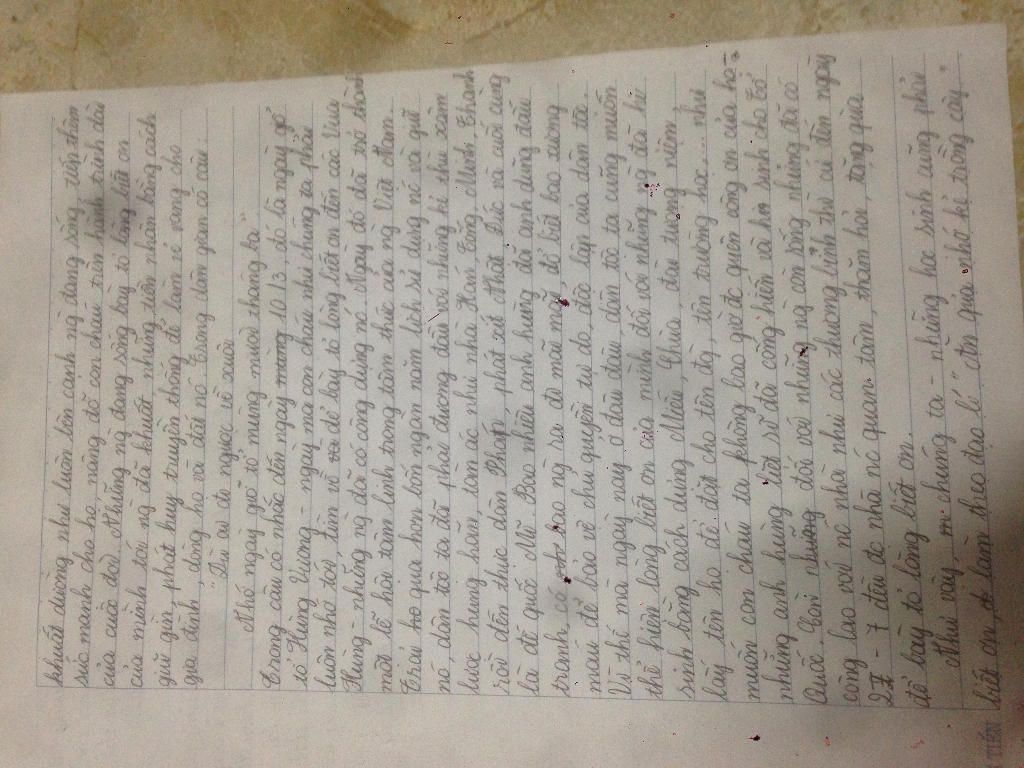 khuất dường như luôn bên cạnh ng đang sống, tiếp thêm
sức mạnh cho họ, nâng đỡ con cháu trên hành trình dài
của cuộc đời. Những ng đang sống bày tỏ lòng biết ơn
của mình tới ng đã khuất những tiền nhân bằng cách
giữ gìn phát huy truyền thống để làm vẻ vang cho
gia đình, dòng họ và đất nc. Trong dân gian có câu:
"Dù ai đi ngược về xuôi
Nhớ ngày giỗ tổ mùng mười tháng ba".
Trong câu có nhắc đến ngày 10/3, đó là ngày giỗ
tổ Hùng Vương - ngày mà con cháu như chúng ta phải
luôn nhớ tới, tìm về để bày tỏ lòng biết ơn đến các Vua
Hùng - những ng đã có công dựng nc. Ngày đó đã trở thành
một lễ hội tâm linh trong tâm thức của ng Việt Nam.
Trải qua hơn bốn ngàn năm lịch sử dựng nc và giữ
nc, dân tộc ta đã phải đương đầu với những kẻ thù xâm
lược hung hãn, tàn ác như nhà Hán, Tống, Minh, Thanh
rồi đến thực dân Pháp, phát xít Nhật, Đức và cuối cùng
là đế quốc Mĩ. Bao nhiêu anh hùng đã anh dũng đấu
tranh, có bao ng ra đi mãi mãi, đổ biết bao xương
máu để bảo vệ chủ quyền, tự do, độc lập của dân tộc.
Vì thế mà ngày nay, ở đâu đâu, dân tộc ta cũng muốn
thể hiện lòng biết ơn của mình đối với những ng đã hi
sinh bằng cách dựng Miếu, Chùa, đài tưởng niệm,
lấy tên họ để đặt cho tên đg, tên trường học,... như
muốn con cháu ta không bao giờ đc quên công ơn của họ -
những anh hùng liệt sĩ đã cống hiến và hi sinh cho Tổ
Quốc. Còn đối với những ng còn sống nhưng đã có
công lao với nc nhà như các thương binh thì cứ đến ngày
27 - 7 đều đc nhà nc quan tâm, thăm hỏi, tặng quà
để bày tỏ lòng biết ơn.
Như vậy, chúng ta - những học sinh cũng phải
biết ơn, làm theo đạo lí "ăn quả nhớ kẻ trồng cây".
TIẾN